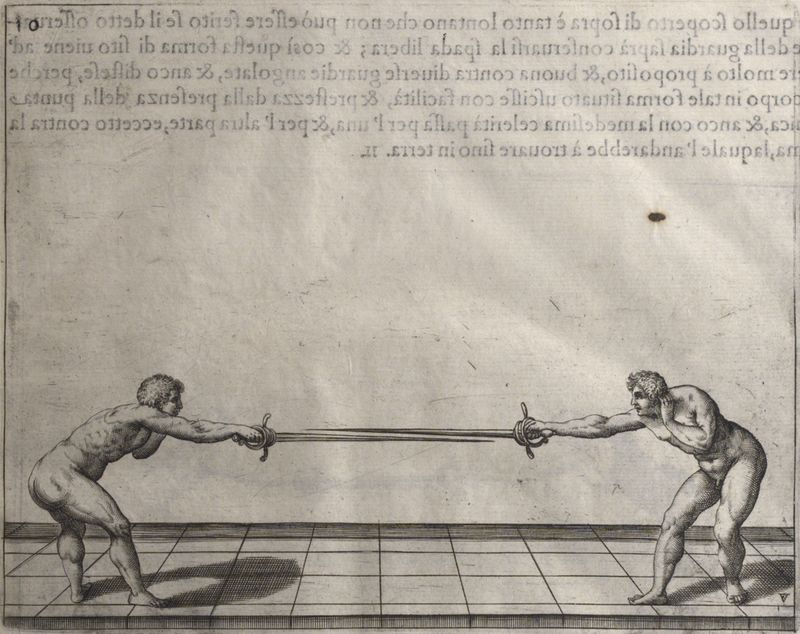 10
quello ſcoperto di ſopra è tanto lontano che non può eſſere ferito ſe il detto
e della guardia ſaprà conſeruarſi la ſpada libera ; & coſi queſta forma di ſito uiene ad'
re molto à propoſito, & buona contra diuerſe guardie angolate, & anco diſteſe, perche
corpo in tale forma ſituato uſciſſe con facilità, & preſtezza dalla preſenza della punta
ica, & anco con la medeſima celerità paſſa per l'una, & per l'altra parte, eccetto contra la
ma, laquale l'andarebbe à trouare ſino in terra.